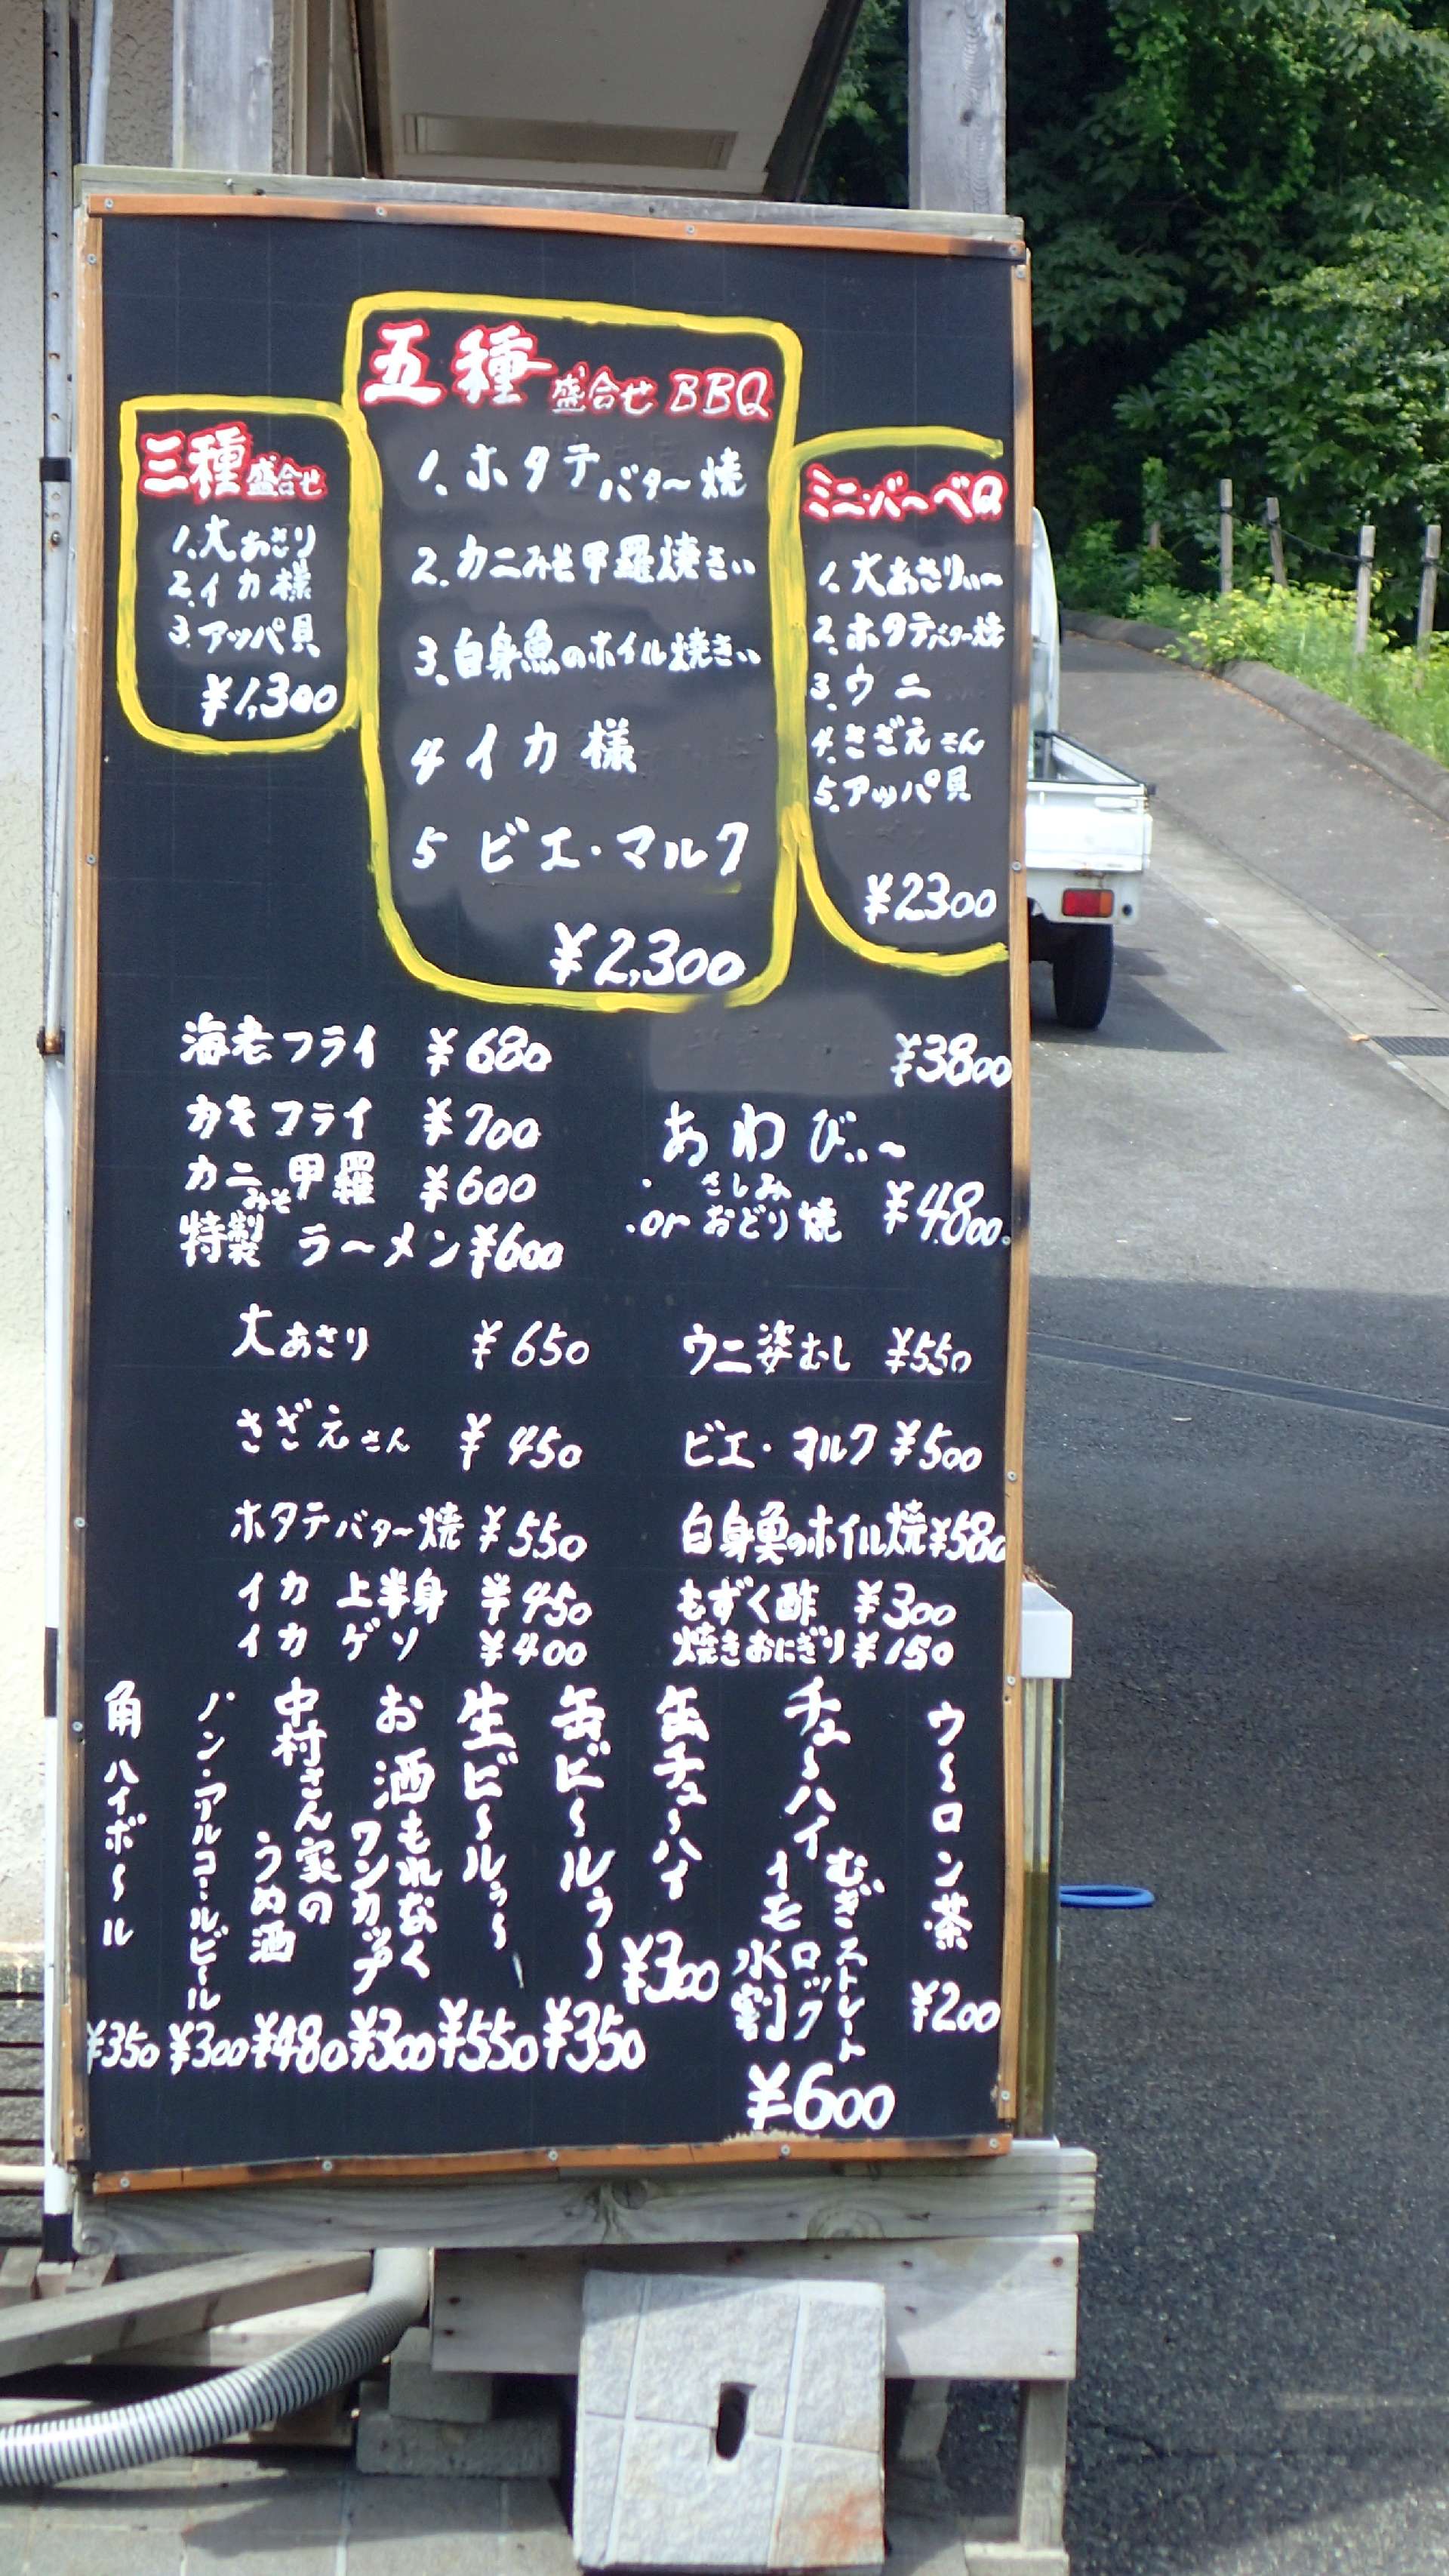 三種盛合せ
1.大あさり
2.イカ様
3.アッパ貝
¥1,300
五種盛合せBBQ
1.ホタテバター焼
2.カニみそ甲羅焼きぃ
3.白身魚のホイル焼きぃ
4 イカ様
5 ピエ・マルク
¥2,300
ミニ・バ〜ベQ
1.大あさりぃ〜
2.ホタテバター焼
3.ウニ
4.さざえさん
5.アッパ貝
¥2300
海老フライ ¥680
カキフライ ¥700
カニみそ甲羅 ¥600
特製 ラ〜メン ¥600
¥3800
あわび〜
・さしみ
・or おどり焼 ¥4800
大あさり ¥650
さざえさん ¥450
ホタテバター焼 ¥550
イカ 上半身 ¥450
イカ ゲソ ¥400
ウニ姿むし ¥550
ピエ・マルク ¥500
白身魚のホイル焼 ¥580
もずく酢 ¥300
焼きおにぎり ¥150
ウ〜ロン茶 ¥200
チュ〜ハイ
むぎ ストレート
イモ ロック
水割
¥600
缶チュ〜ハイ ¥300
缶ビ〜ルぅ〜 ¥350
生ビ〜ルぅ〜 ¥550
お酒もれなく
ワンカップ ¥300
中村さん家の
うめ酒 ¥480
ノン・アルコールビール ¥300
角ハイボ〜ル ¥350